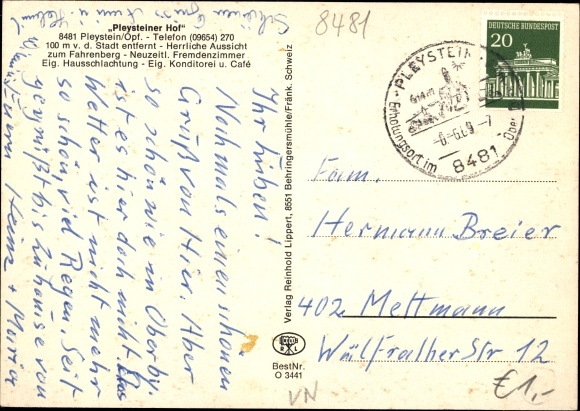 "Pleysteiner Hof"
8481 Pleystein/Opf. - Telefon (09654) 270
100 m v. d. Stadt entfernt - Herrliche Aussicht
zum Fahrenberg - Neuzeitl. Fremdenzimmer
Eig. Hausschlachtung - Eig. Konditorei u. Café
8481
Ihr Lieben!
Nochmals einen schönen
Gruß von Hier. Aber
so schön wie in Oberby.
ist es hier doch nicht. Das
Wetter ist nicht mehr
so schön viel Regen. Seit
gegrüßt bis zuhause von
Heinz + Maria
Verlag Reinhold Lippert, 8551 Behringersmühle/Fränk. Schweiz
DEUTSCHE BUNDESPOST
20
PLEYSTEIN
Erholungsort im
Ober
-6.-6.69-7
8481
Fam.
Hermann Breier
402 Mettmann
Wülfrather Str 12
R L
BestNr.
O 3441
VN
€1,-